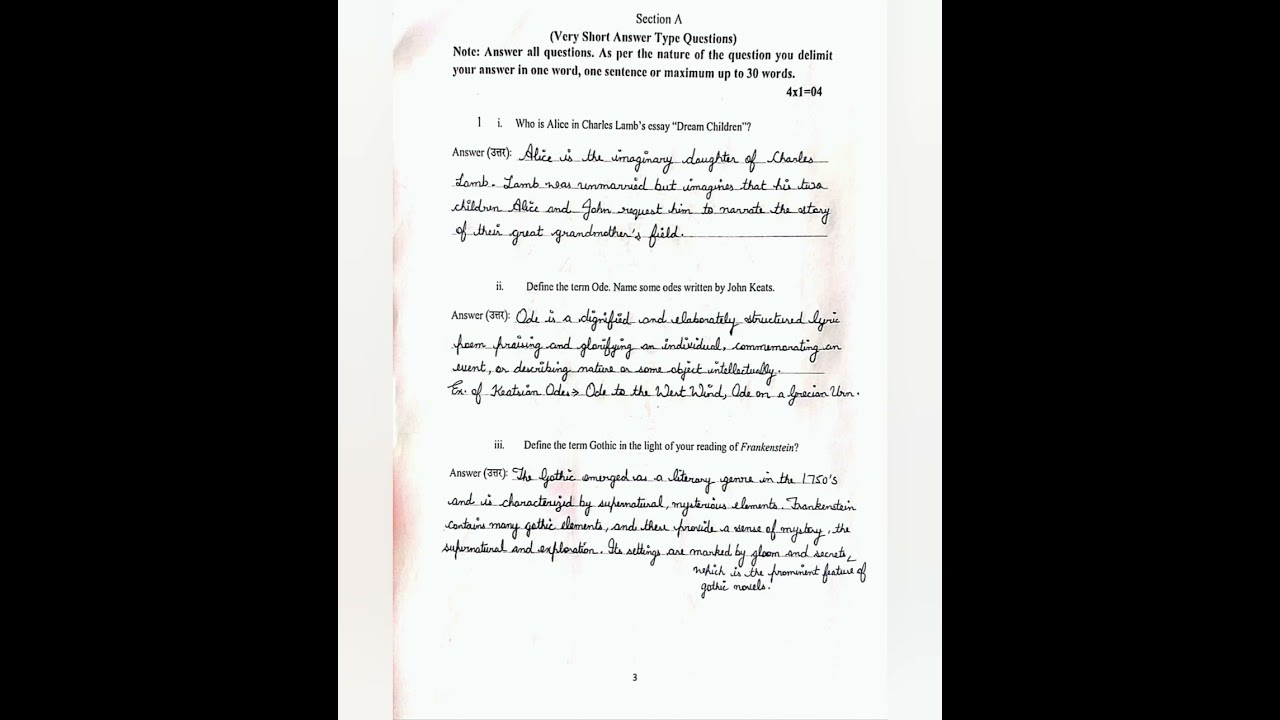 Section A
(Very Short Answer Type Questions)
Note: Answer all questions. As per the nature of the question you delimit
your answer in one word, one sentence or maximum up to 30 words.
4x1=04
1 i. Who is Alice in Charles Lamb's essay "Dream Children"?
Answer (उत्तर): Alice is the imaginary daughter of Charles
Lamb. Lamb was unmarried but imagines that his two
children Alice and John request him to narrate the story
of their great grandmother's field.
ii. Define the term Ode. Name some odes written by John Keats.
Answer (उत्तर): Ode is a dignified and elaborately structured lyric
poem praising and glorifying an individual, commemorating an
event, or describing nature or some object intellectually.
Ex. of Keatsian Odes⇒ Ode to the West Wind, Ode on a Grecian Urn.
iii. Define the term Gothic in the light of your reading of Frankenstein?
Answer (उत्तर): The Gothic emerged as a literary genre in the 1750's
and is characterized by supernatural, mysterious elements. Frankenstein
contains many gothic elements, and these provide a sense of mystery, the
supernatural and exploration. Its settings are marked by gloom and secrets,
which is the prominent feature of
gothic novels.
3